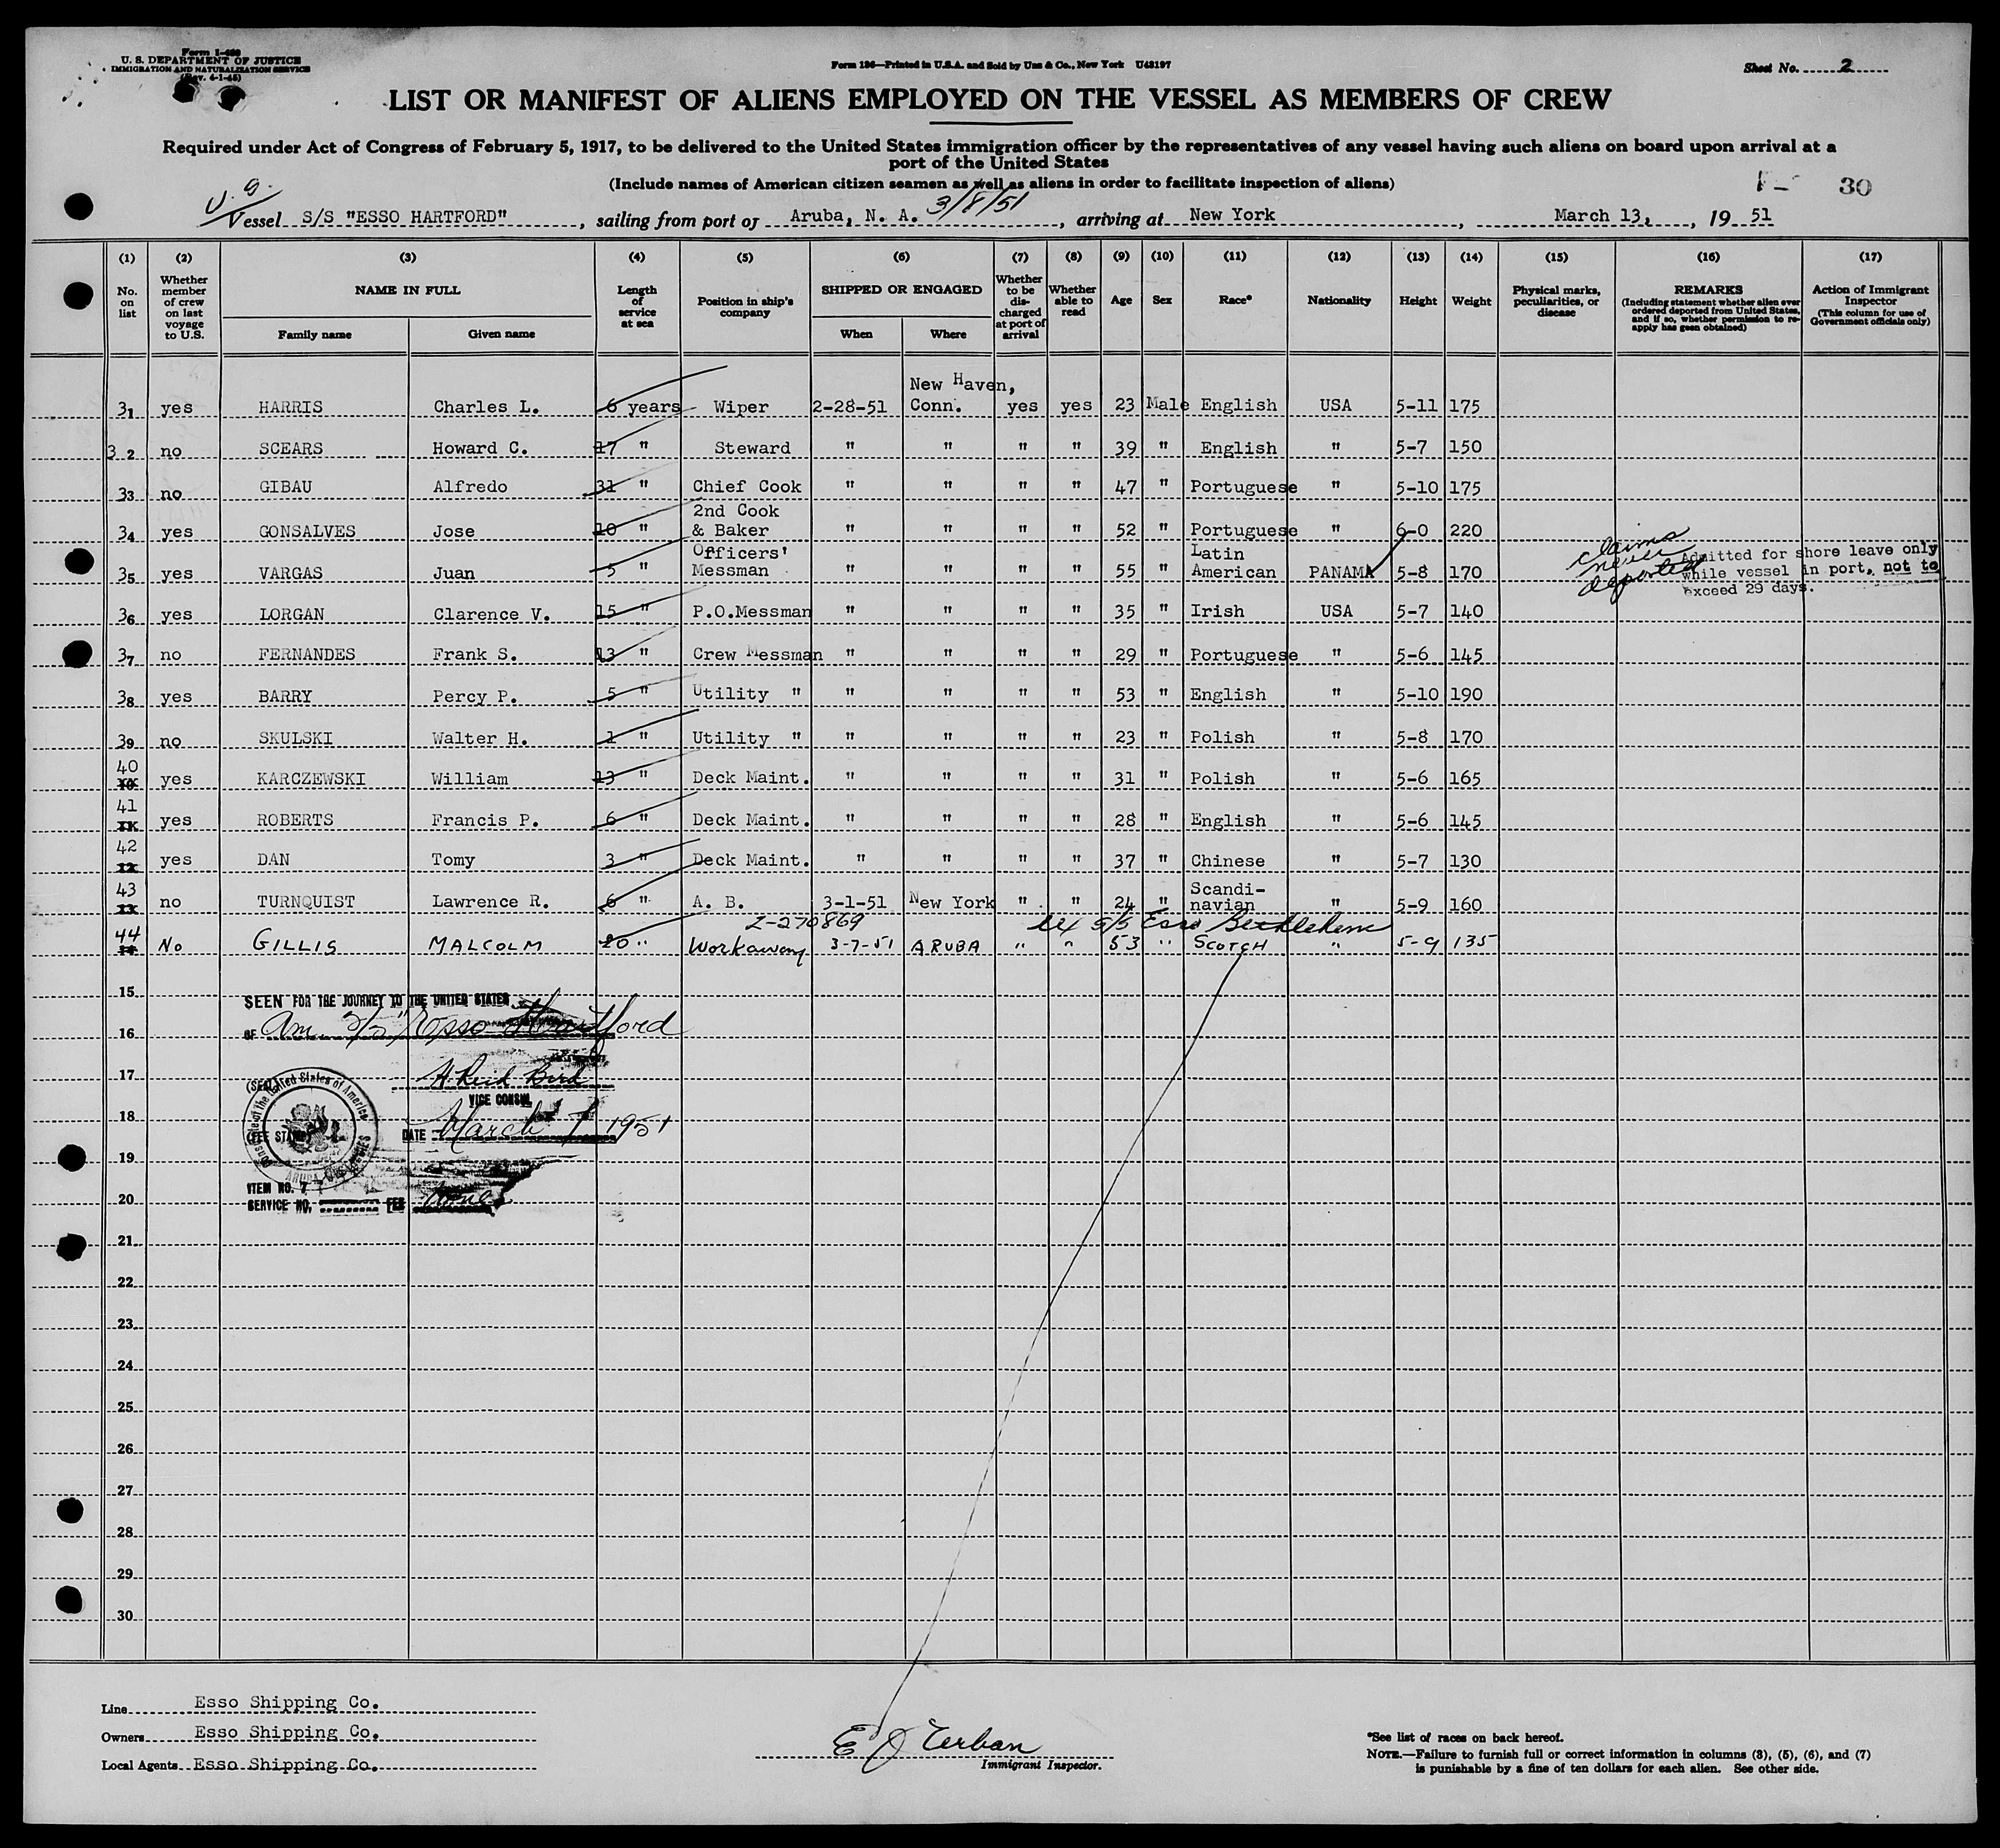 Form I-480
U. S. DEPARTMENT OF JUSTICE
IMMIGRATION AND NATURALIZATION SERVICE
(Rev. 4-1-45)
Form 186—Printed in U.S.A. and Sold by Unz & Co., New York U43197
Sheet No. 2
LIST OR MANIFEST OF ALIENS EMPLOYED ON THE VESSEL AS MEMBERS OF CREW
Required under Act of Congress of February 5, 1917, to be delivered to the United States immigration officer by the representatives of any vessel having such aliens on board upon arrival at a
port of the United States
(Include names of American citizen seamen as well as aliens in order to facilitate inspection of aliens)
30
Vessel S/S "ESSO HARTFORD", sailing from port of Aruba, N. A. 3/8/51, arriving at New York, March 13, 1951
(1) (2) (3) (4) (5) (6) (7) (8) (9) (10) (11) (12) (13) (14) (15) (16) (17)
No. on list
Whether member of crew on last voyage to U.S.
NAME IN FULL
Family name
Given name
Length of service at sea
Position in ship's company
SHIPPED OR ENGAGED
When
Where
Whether to be discharged at port of arrival
Whether able to read
Age
Sex
Race*
Nationality
Height
Weight
Physical marks, peculiarities, or disease
REMARKS
(Including statement whether alien ever ordered deported from United States, and if so, whether permission to re-apply has been obtained)
Action of Immigrant Inspector
(This column for use of Government officials only)
31 yes HARRIS Charles L. 6 years Wiper 2-28-51 New Haven, Conn. yes yes 23 Male English USA 5-11 175
32 no SCEARS Howard C. 17 " Steward " " " " 39 " English " 5-7 150
33 no GIBAU Alfredo 31 " Chief Cook " " " " 47 " Portuguese " 5-10 175
34 yes GONSALVES Jose 10 " 2nd Cook & Baker " " " " 52 " Portuguese " 6-0 220
35 yes VARGAS Juan 5 " Officers' Messman " " " " 55 " Latin American PANAMA 5-8 170 claims never deported Admitted for shore leave only while vessel in port, not to exceed 29 days.
36 yes LORGAN Clarence V. 15 " P.O.Messman " " " " 35 " Irish USA 5-7 140
37 no FERNANDES Frank S. 13 " Crew Messman " " " " 29 " Portuguese " 5-6 145
38 yes BARRY Percy P. 5 " Utility " " " " " 53 " English " 5-10 190
39 no SKULSKI Walter H. 1 " Utility " " " " " 23 " Polish " 5-8 170
40 yes KARCZEWSKI William 13 " Deck Maint. " " " " 31 " Polish " 5-6 165
41 yes ROBERTS Francis P. 6 " Deck Maint. " " " " 28 " English " 5-6 145
42 yes DAN Tomy 3 " Deck Maint. " " " " 37 " Chinese " 5-7 130
43 no TURNQUIST Lawrence R. 6 " A. B. 3-1-51 New York " " 24 " Scandi-navian " 5-9 160
Z-270869 ex S/S Esso Bethlehem
44 No GILLIS MALCOLM 20 " Workaway 3-7-51 ARUBA " " 53 " SCOTCH " 5-9 135
15
SEEN FOR THE JOURNEY TO THE UNITED STATES
16
OF Am. S/S "Esso Hartford
17
(SEAL)
H. Reid Bird
VICE CONSUL
18
(FEE STAMP)
DATE March 7 1951
19
ITEM NO. 7
20
SERVICE NO. FEE
21
22
23
24
25
26
27
28
29
30
Line Esso Shipping Co.
Owners Esso Shipping Co.
Local Agents Esso Shipping Co.
Immigrant Inspector.
*See list of races on back hereof.
NOTE.—Failure to furnish full or correct information in columns (3), (5), (6), and (7)
is punishable by a fine of ten dollars for each alien. See other side.